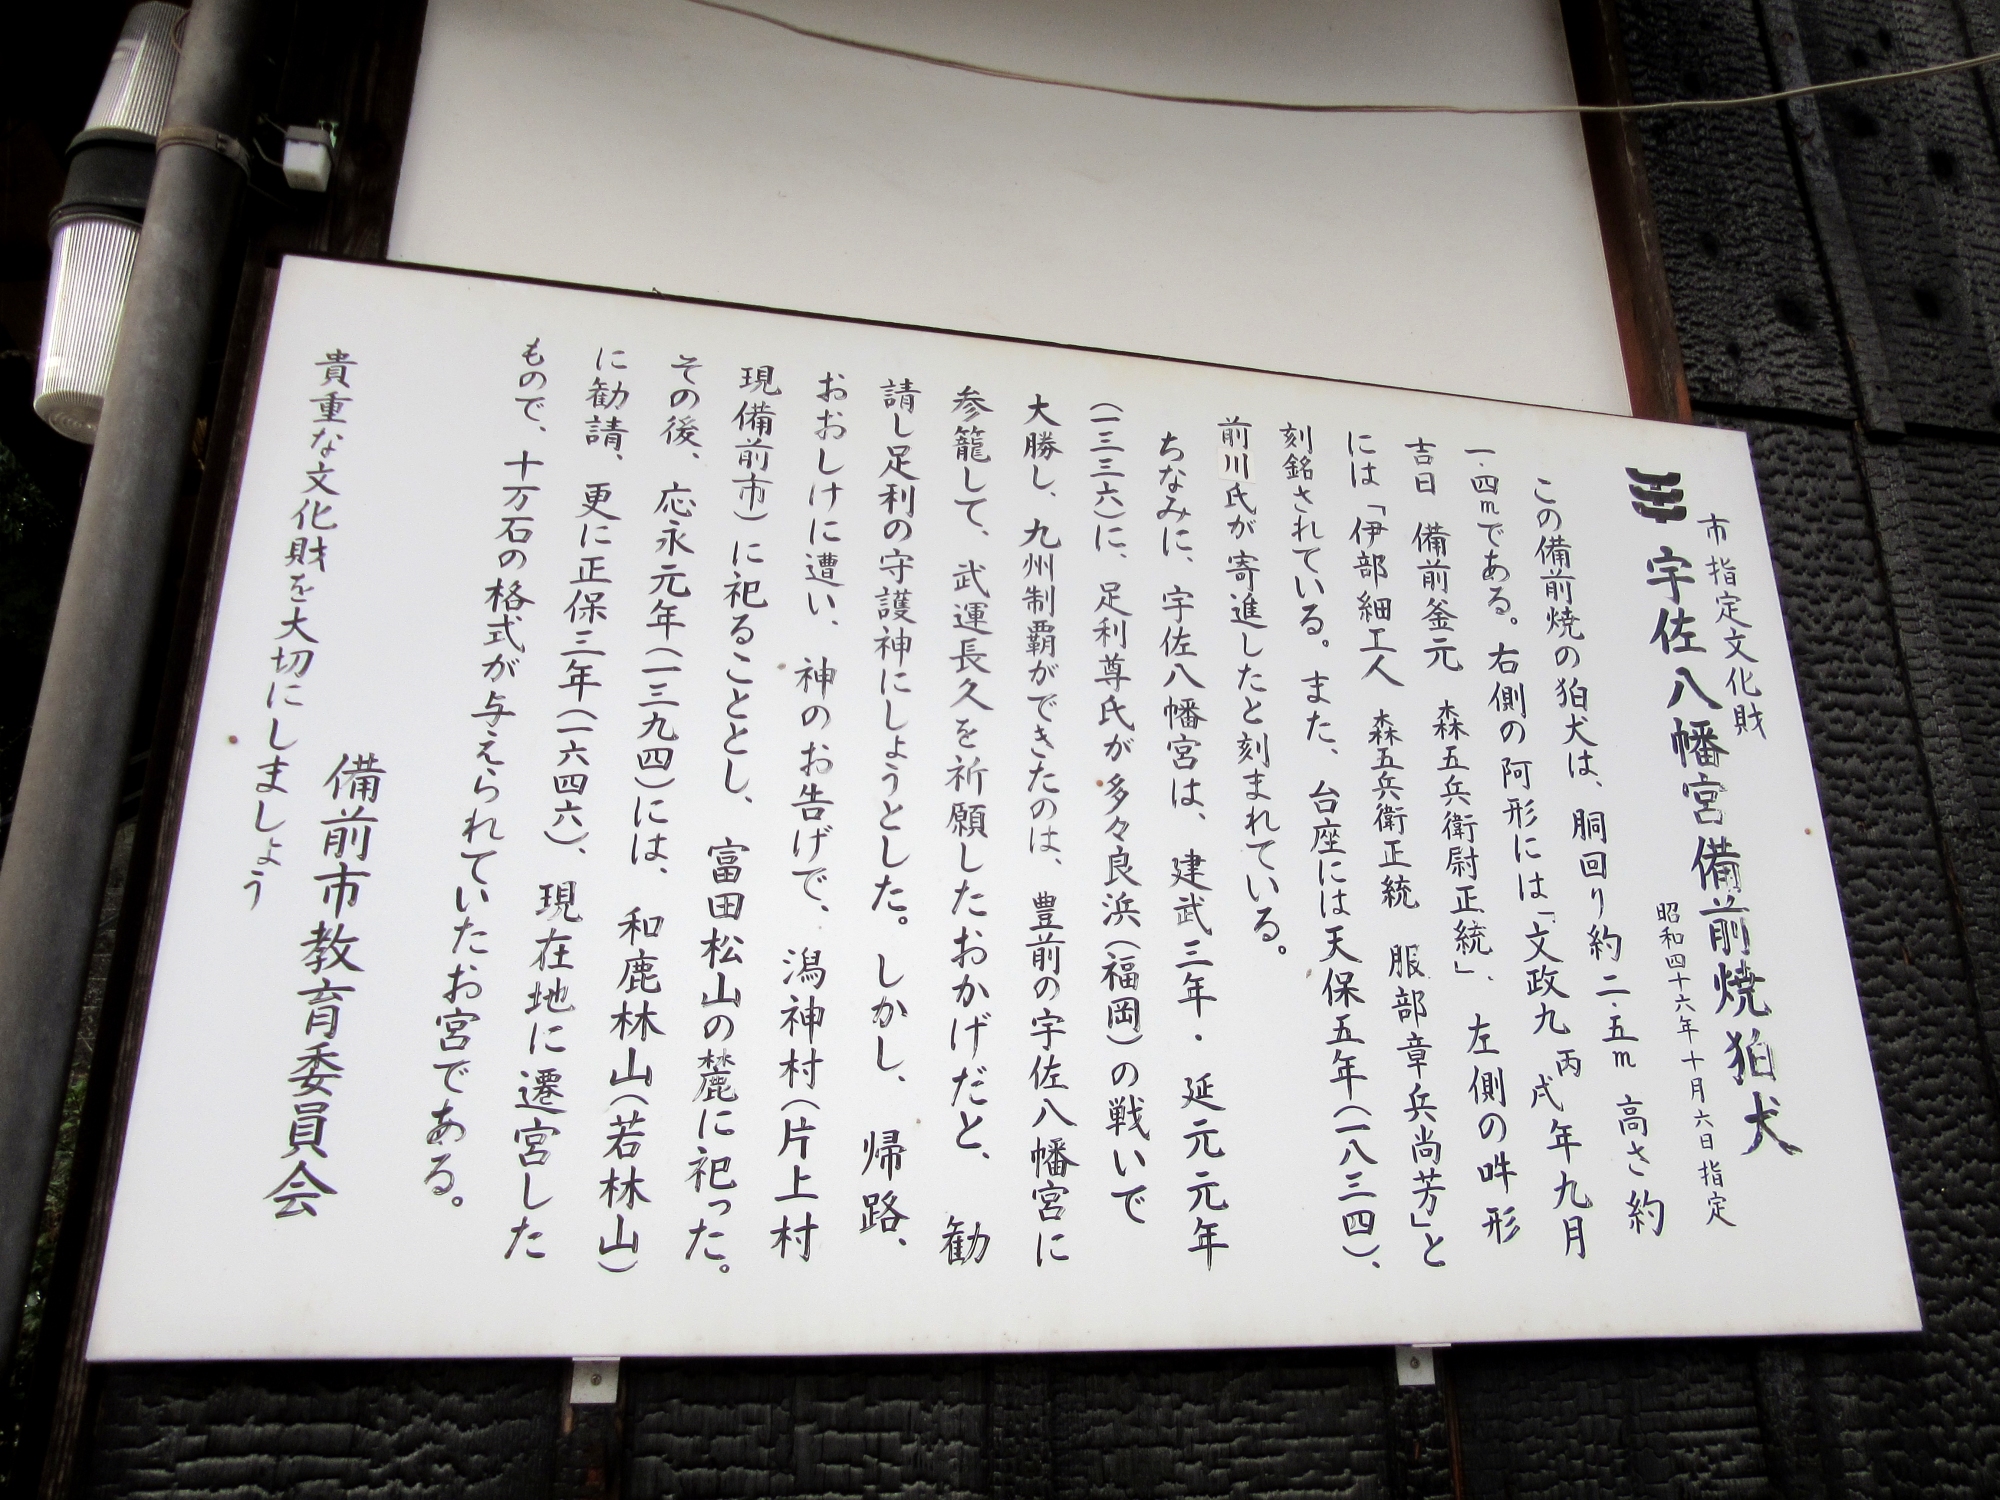 市指定文化財
宇佐八幡宮備前焼狛犬
昭和四十六年十月六日指定
この備前焼の狛犬は、胴回り約二・五m 高さ約
一・四mである。右側の阿形には「文政九丙戌年九月
吉日 備前釜元 森五兵衛尉正統」、左側の吽形
には「伊部細工人 森五兵衛正統 服部章兵尚芳」と
刻銘されている。また、台座には天保五年(一八三四)、
前川氏が寄進したと刻まれている。
ちなみに、宇佐八幡宮は、建武三年・延元元年
(一三三六)に、足利尊氏が多々良浜(福岡)の戦いで
大勝し、九州制覇ができたのは、豊前の宇佐八幡宮に
参籠して、武運長久を祈願したおかげだと、勧
請し足利の守護神にしようとした。しかし、帰路、
おおしけに遭い、神のお告げで、潟神村(片上村
現備前市)に祀ることとし、富田松山の麓に祀った。
その後、応永元年(一三九四)には、和鹿林山(若林山)
に勧請、更に正保三年(一六四六)、現在地に遷宮した
もので、十万石の格式が与えられていたお宮である。
備前市教育委員会
貴重な文化財を大切にしましょう